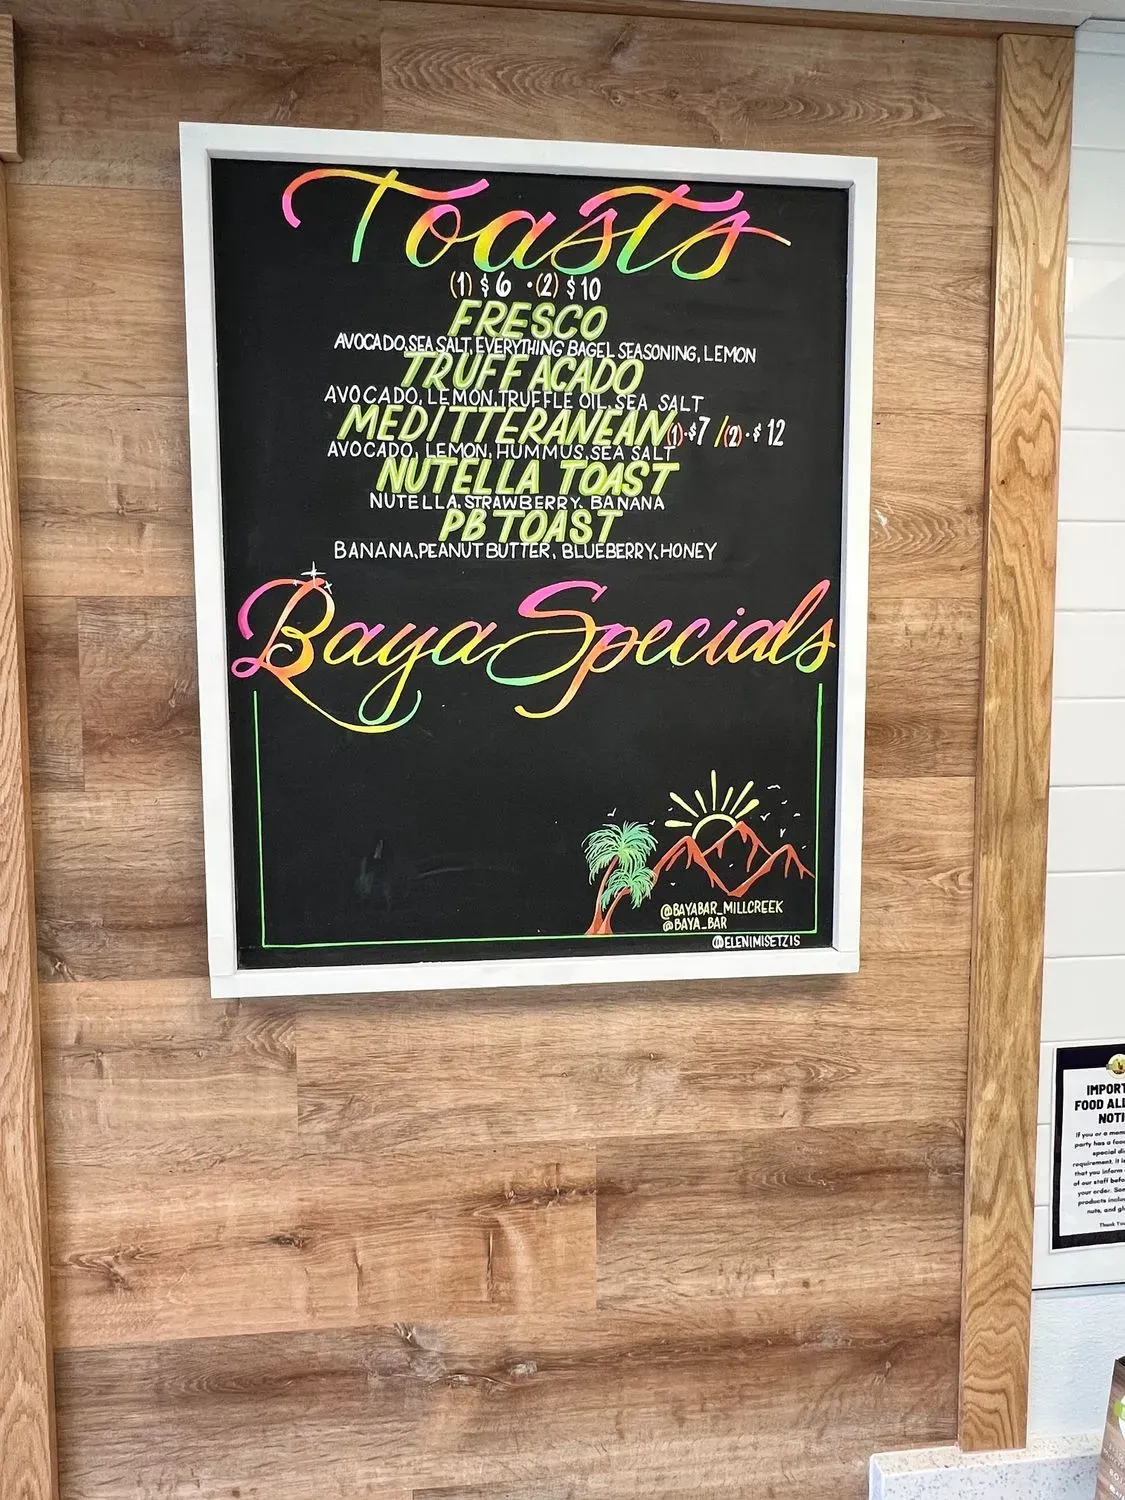 Toasts
(1) $6 • (2) $10
FRESCO
AVOCADO, SEA SALT, EVERYTHING BAGEL SEASONING, LEMON
TRUFF ACADO
AVOCADO, LEMON, TRUFFLE OIL, SEA SALT
MEDITTERANEAN (1)•$7 /(2)•$12
AVOCADO, LEMON, HUMMUS, SEA SALT
NUTELLA TOAST
NUTELLA, STRAWBERRY, BANANA
PB TOAST
BANANA, PEANUT BUTTER, BLUEBERRY, HONEY
Baya Specials
@BAYABAR_MILLCREEK
@BAYA_BAR
@ELENIMISETZIS
FOOD
If you or a
party has a
special
requirement, it
that you inform
of our staff
your order.
products
nuts, and
Thank